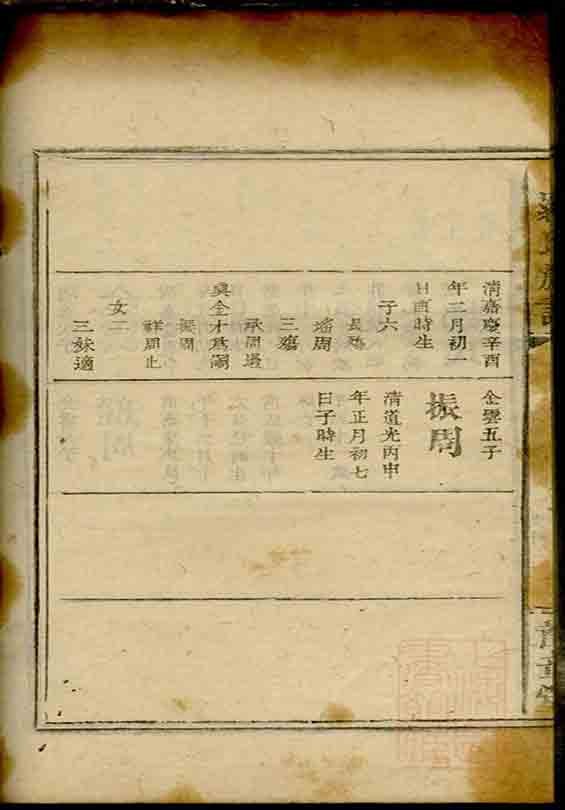 清嘉慶辛酉
年二月初一
日酉時生
子六
長殤
瑤周
三殤
承周過
與金才爲嗣
振周
祥周止
女二
三妹適
金雲五子
振周
清道光丙申
年正月初七
日子時生